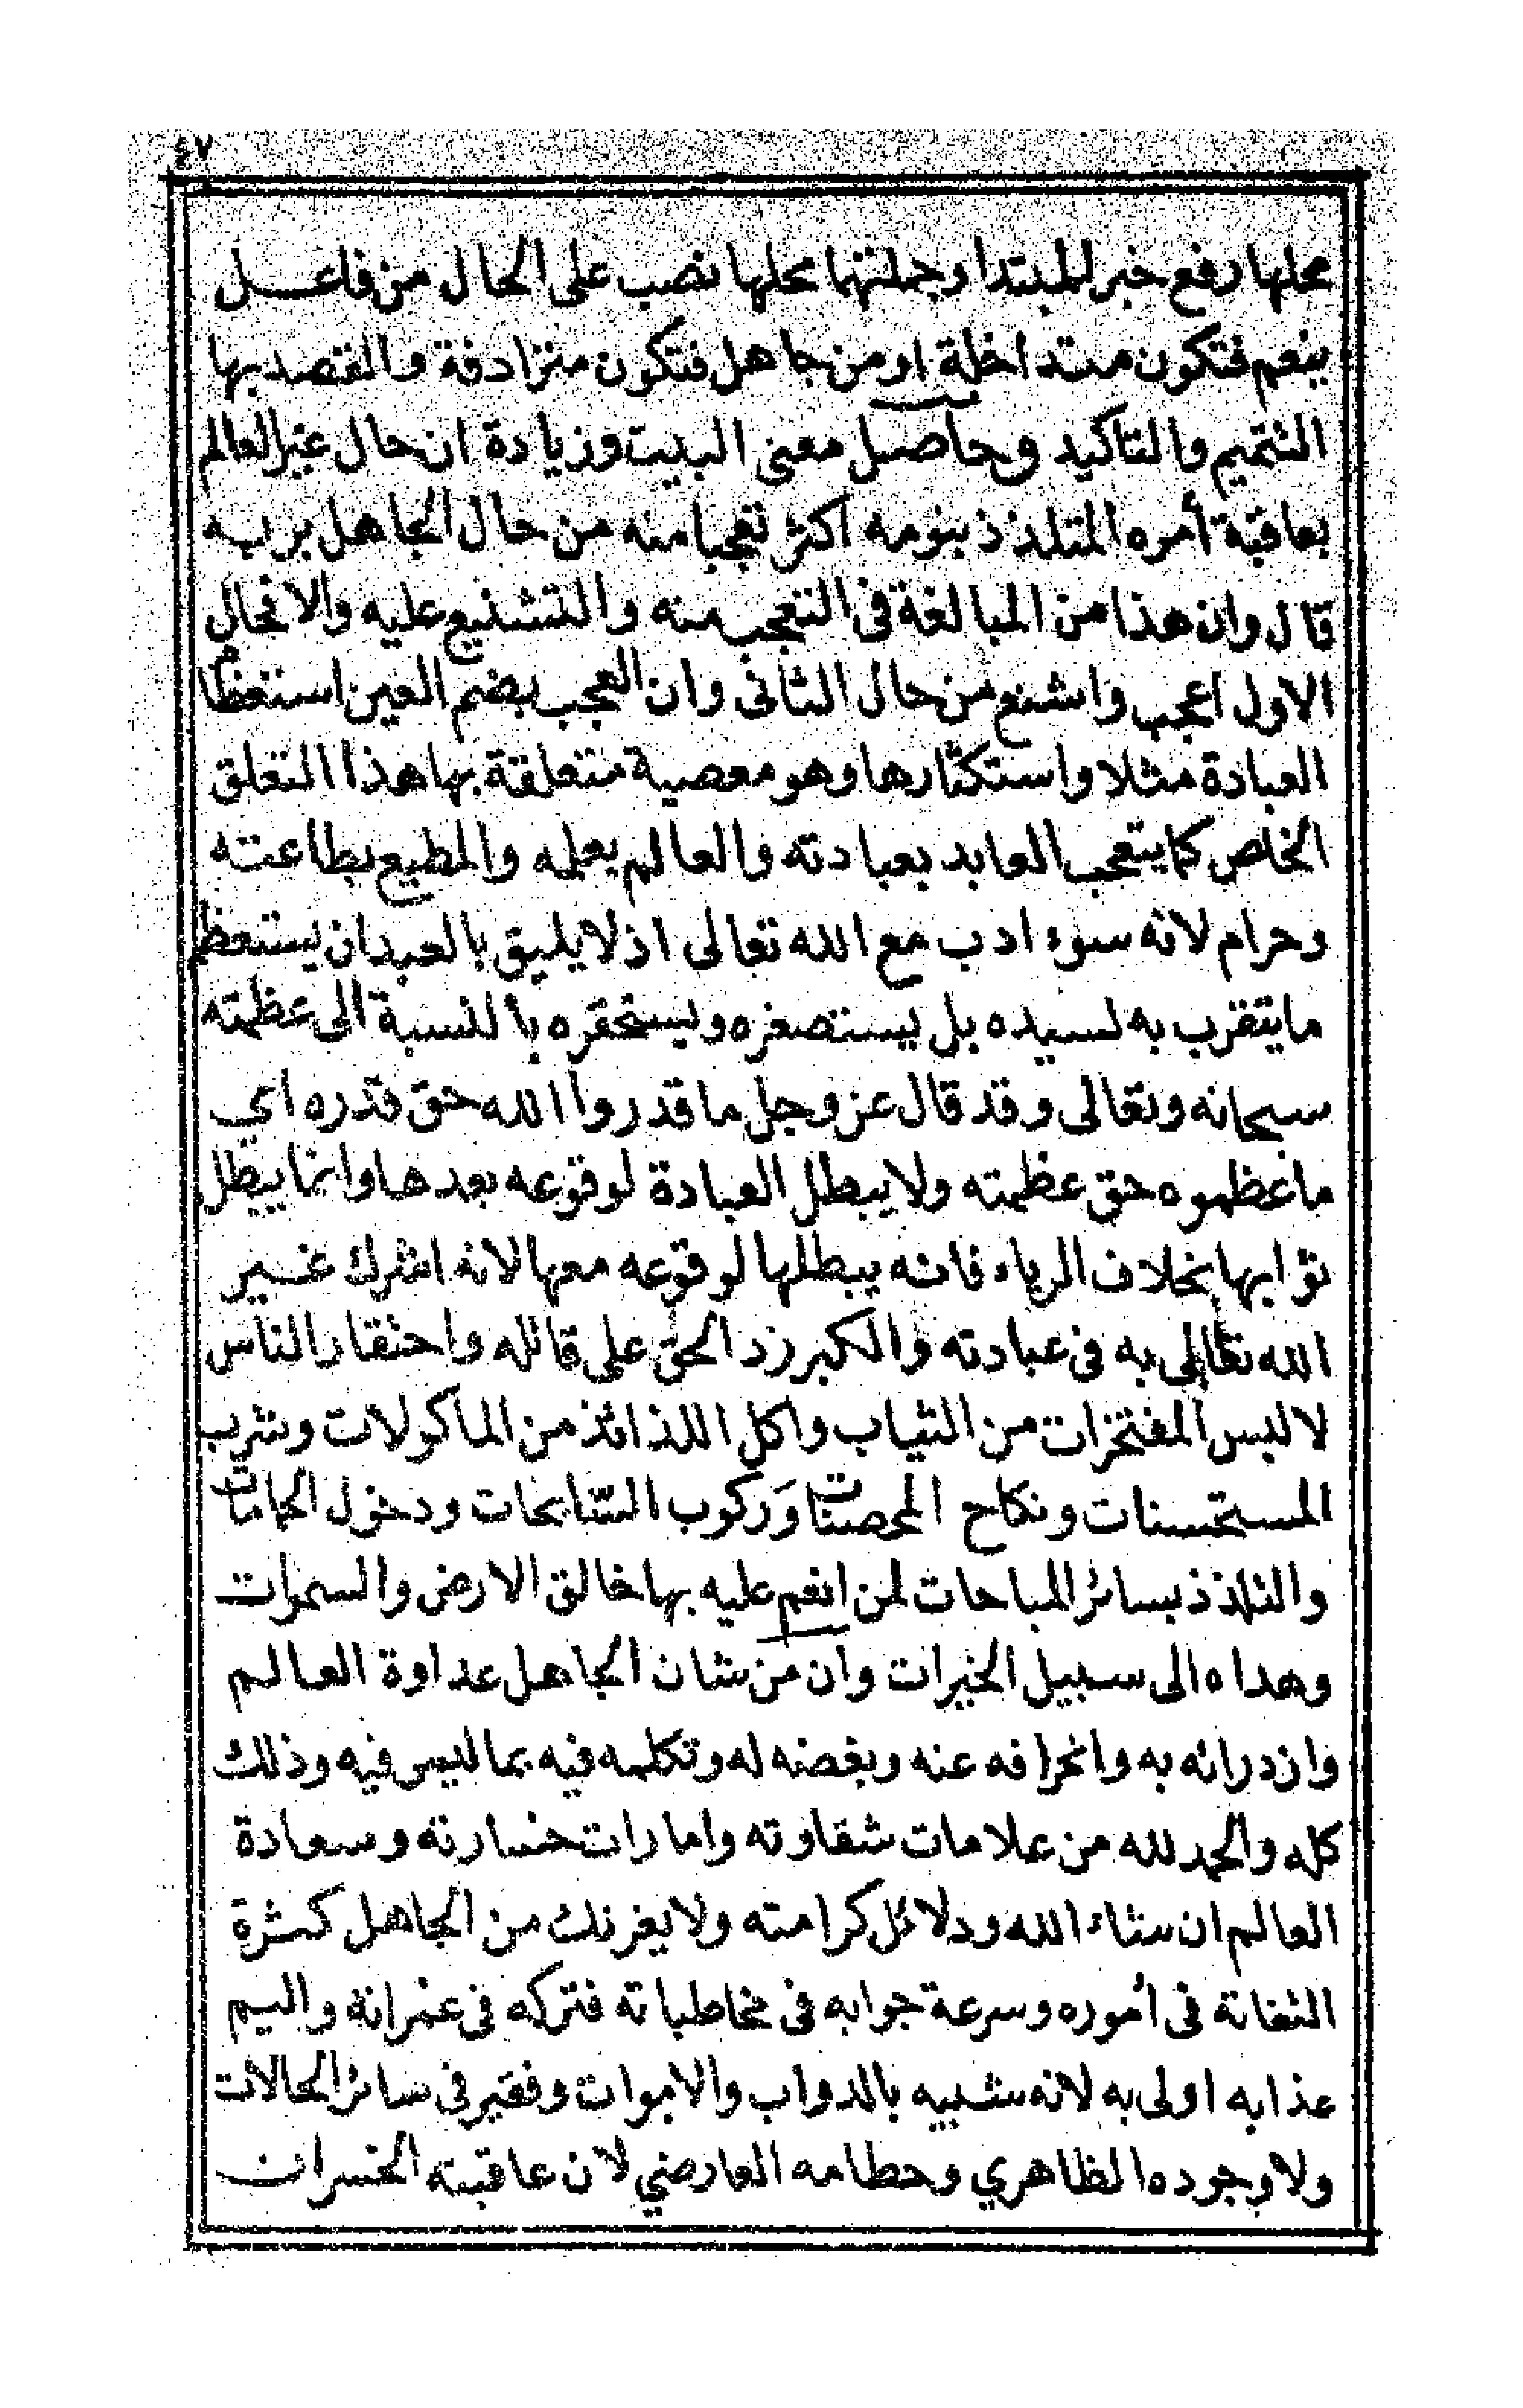 ٤٧
محلها رفع خبر للمبتدا وجملتها محلها نصب على الحال من فاعل
ينعم فتكون متداخلة او من جاهل فتكون مترادفة والقصد بها
التتميم والتاكيد وحاصل معنى البيت وزيادة ان حال غير العالم
بعاقبة أمره المتلذذ بنومه اكثر تعجبا منه من حال الجاهل بربه
قال وان هذا من المبالغة فى التعجب منه والتشنيع عليه والا فحال
الاول اعجب واشنع من حال الثانى وان العجب بضم العين استعظام
العبادة مثلا واستكثارها وهو معصية متعلقة بها هذا التعلق
الخاص كما يتعجب العابد بعبادته والعالم بعلمه والمطيع بطاعته
وحرام لانه سوء ادب مع الله تعالى اذ لا يليق بالعبد ان يستعظم
ما يتقرب به لسيده بل يستصغره ويستحقره بالنسبة الى عظمته
سبحانه وتعالى وقد قال عز وجل ما قدروا الله حق قدره اي
ما عظموه حق عظمته ولا يبطل العبادة لوقوعه بعدها وانما يبطل
ثوابها بخلاف الرياء فانه يبطلها لوقوعه معها لانه اشرك غير
الله تعالى به فى عبادته والكبر رد الحق على قائله واحتقار الناس
لا لبس المفتخرات من الثياب واكل اللذائذ من الماكولات وشرب
المستحسنات ونكاح المحصنات وَركوب السّابحات ودخول الحمامات
والتلذذ بسائر المباحات لمن انعم عليه بها خالق الارض والسموات
وهداه الى سبيل الخيرات وان من شان الجاهل عداوة العالم
وازدرائه به وانحرافه عنه وبغضه له وتكلمه فيه بما ليس فيه وذلك
كله والحمد لله من علامات شقاوته وامارات خسارته وسعادة
العالم ان شاء الله ودلائل كرامته ولا يغرنك من الجاهل كثرة
التفاتة فى أموره وسرعة جوابه فى مخاطباته فتركه فى غمراته واليم
عذابه اولى به لانه شبيه بالدواب والاموات وفقير فى سائر الحالات
ولا وجوده الظاهري وحطامه العارضي لان عاقبته الخسران